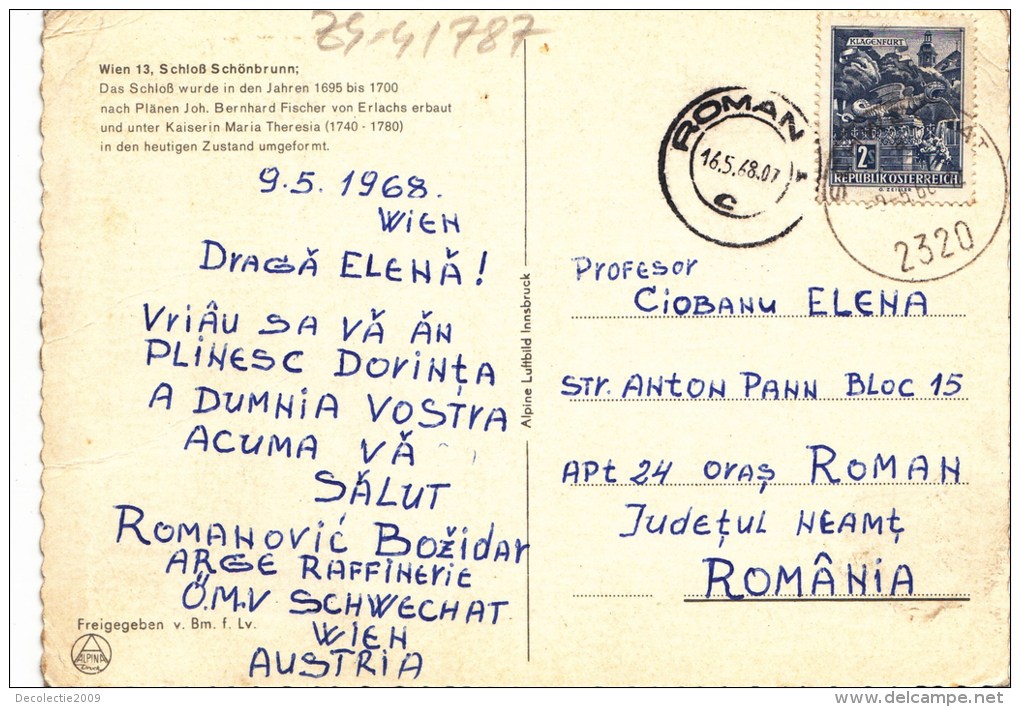 ZS-41787
Wien 13, Schloß Schönbrunn;
Das Schloß wurde in den Jahren 1695 bis 1700
nach Plänen Joh. Bernhard Fischer von Erlachs erbaut
und unter Kaiserin Maria Theresia (1740 - 1780)
in den heutigen Zustand umgeformt.
9.5. 1968.
WIEN
DRAGĂ ELENĂ!
VRIÂU SA VĂ ĂN
PLINESC DORINȚA
A DUMNIA VOSTRA
ACUMA VĂ
SĂLUT
ROMANOVIĆ BOŽIDAR
ARGE RAFFINERIE
Ö.M.V SCHWECHAT
WIEN
AUSTRIA
Freigegeben v. Bm. f. Lv.
ALPINA
Druck
Alpine Luftbild Innsbruck
KLAGENFURT
2s
REPUBLIK ÖSTERREICH
O. ZEILER
ROMAN
16.5.68.07
C
2320
PROFESOR
CIOBANU ELENA
STR. ANTON PANN BLOC 15
APT 24 ORAȘ ROMAN
JUDEȚUL NEAMȚ
ROMÂNIA
Decolectie2009
www.delcampe.net